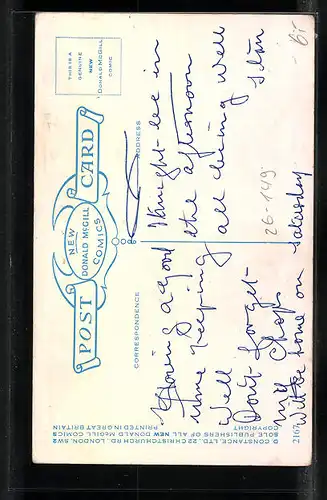 POST CARD
NEW
DONALD McGILL
COMICS
THIS IS A
GENUINE
NEW
DONALD McGILL
COMIC
CORRESPONDENCE
ADDRESS
Having a good
time keeping
Well
Don't forget-
milk Chops
Will be home on Saturday
in
the afternoon
all being well
26-149
Br
D. CONSTANCE, LTD., 22 CHRISTCHURCH RD. LONDON, SW2
SOLE PUBLISHERS OF ALL NEW DONALD McGILL COMICS
COPYRIGHT PRINTED IN GREAT BRITAIN
2167